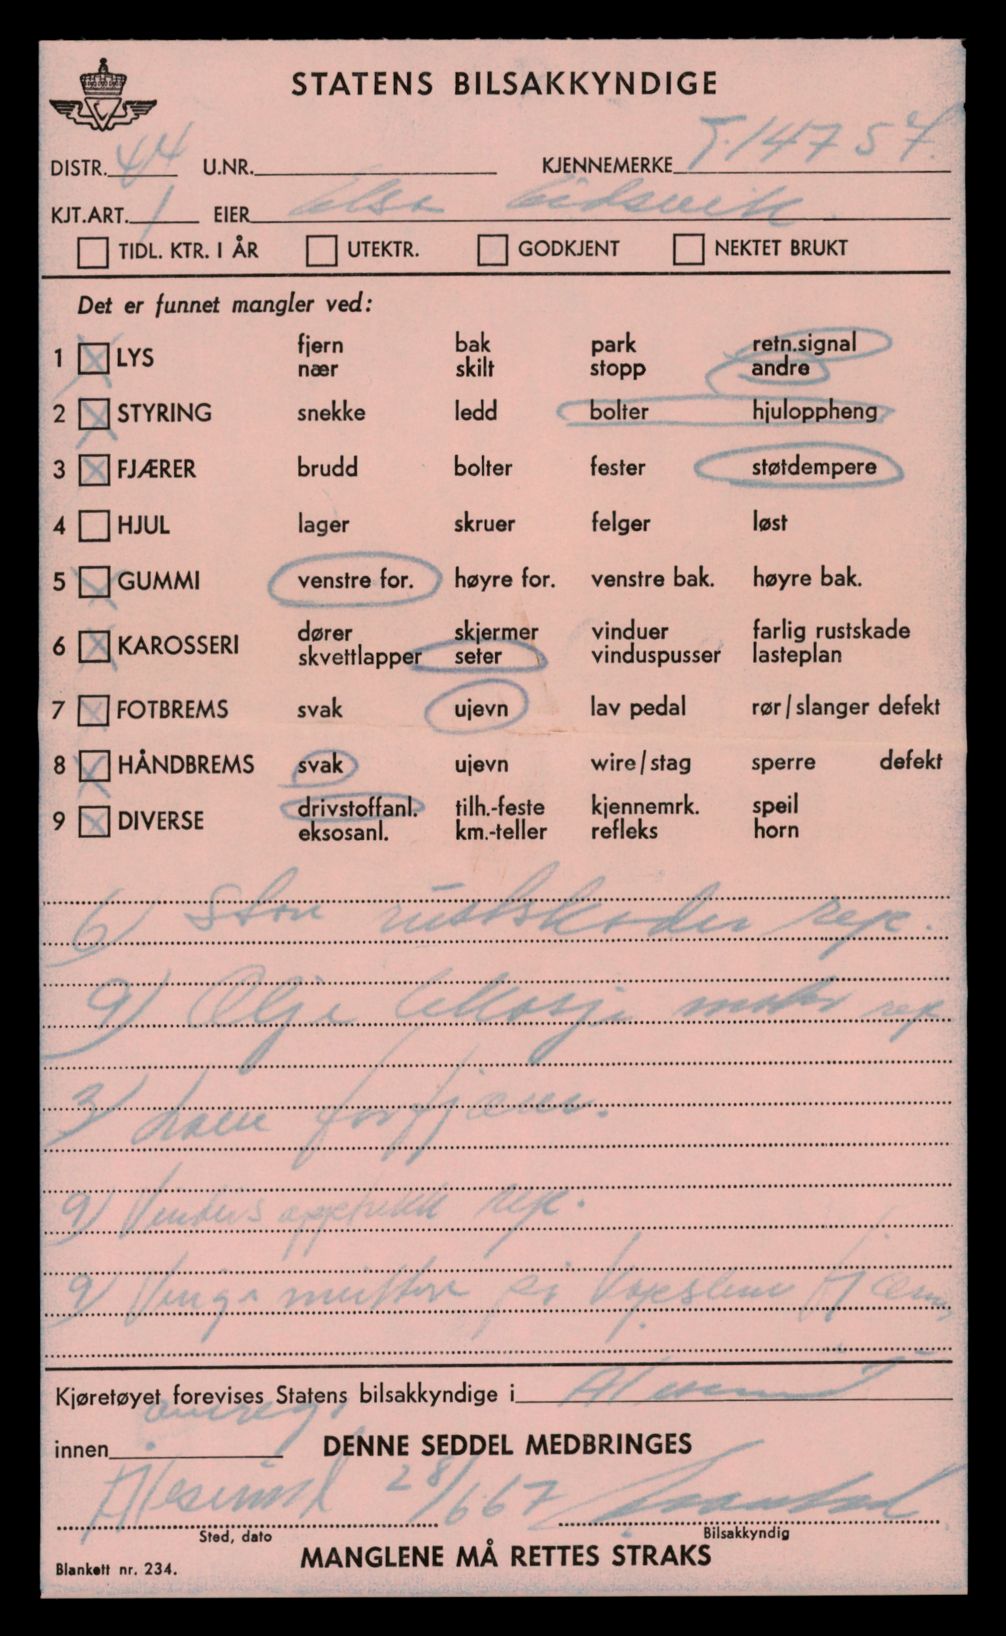 STATENS BILSAKKYNDIGE
DISTR. 44 U.NR. KJENNEMERKE T.14757.
KJT.ART. 1 EIER Elsa Eidsvik.
TIDL. KTR. I ÅR UTEKTR. GODKJENT NEKTET BRUKT
Det er funnet mangler ved:
1 LYS fjern bak park retn.signal
nær skilt stopp andre
2 STYRING snekke ledd bolter hjuloppheng
3 FJÆRER brudd bolter fester støtdempere
4 HJUL lager skruer felger løst
5 GUMMI venstre for. høyre for. venstre bak. høyre bak.
6 KAROSSERI dører skjermer vinduer farlig rustskade
skvettlapper seter vinduspusser lasteplan
7 FOTBREMS svak ujevn lav pedal rør/slanger defekt
8 HÅNDBREMS svak ujevn wire/stag sperre defekt
9 DIVERSE drivstoffanl. tilh.-feste kjennemrk. speil
eksosanl. km.-teller refleks horn
6) Store rustskader rep.
9) Olje motor rep
3) forfjærer.
9) rep.
9) på
Kjøretøyet forevises Statens bilsakkyndige i Ålesund
innen DENNE SEDDEL MEDBRINGES
Ålesund 28/6 67
Sted, dato Bilsakkyndig
Blankett nr. 234. MANGLENE MÅ RETTES STRAKS